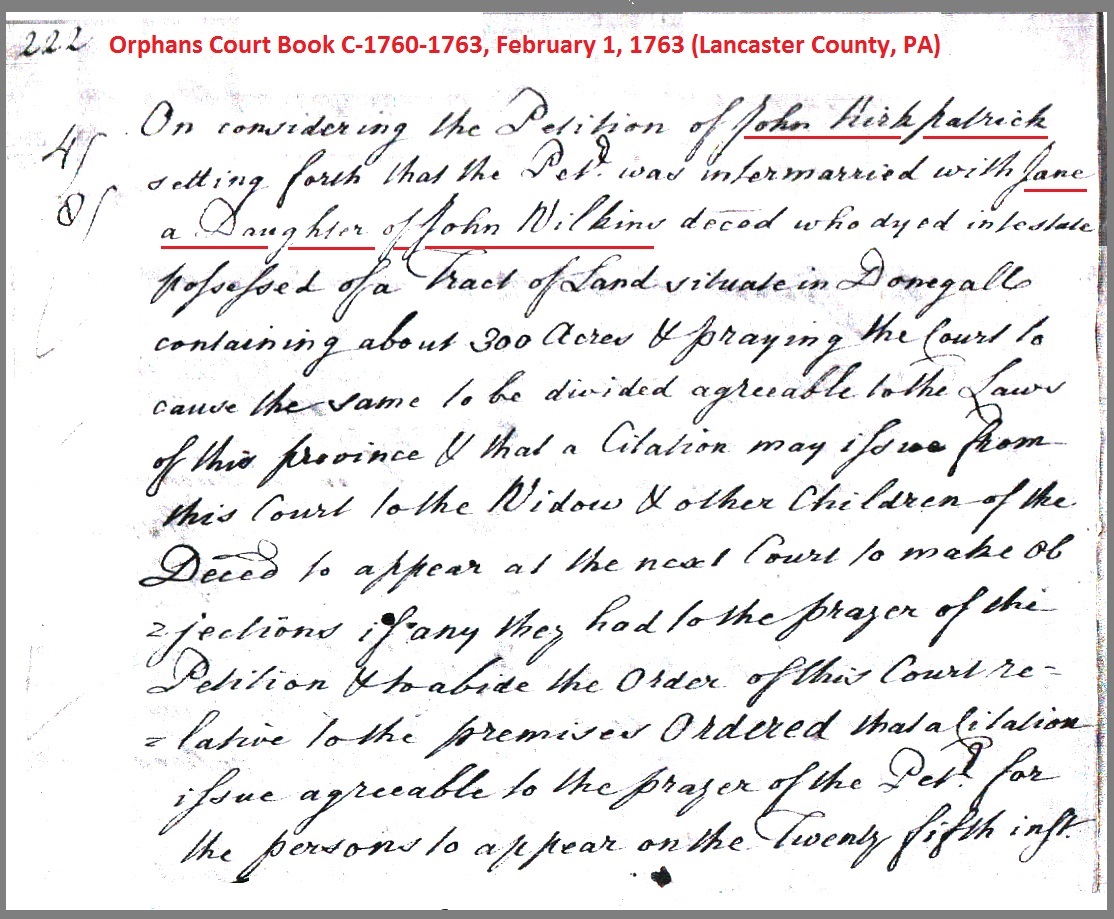 222 Orphans Court Book C-1760-1763, February 1, 1763 (Lancaster County, PA)
On considering the Petition of John Kirkpatrick
4/
setting forth that the Petr. was intermarried with Jane
8/
a Daughter of John Wilkins decod who dyed intestate
possessed of a Tract of Land situate in Donegall
containing about 300 Acres & praying the Court to
cause the same to be divided agreeable to the Laws
of this province & that a Citation may issue from
this Court to the Widow & other Children of the
Deced to appear at the next Court to make Ob
=jections if any they had to the prayer of the
Petition & to abide the Order of this Court re=
=lative to the premises Ordered that a Citation
issue agreeable to the prayer of the Petr. for
the persons to appear on the Twenty fifth inst.